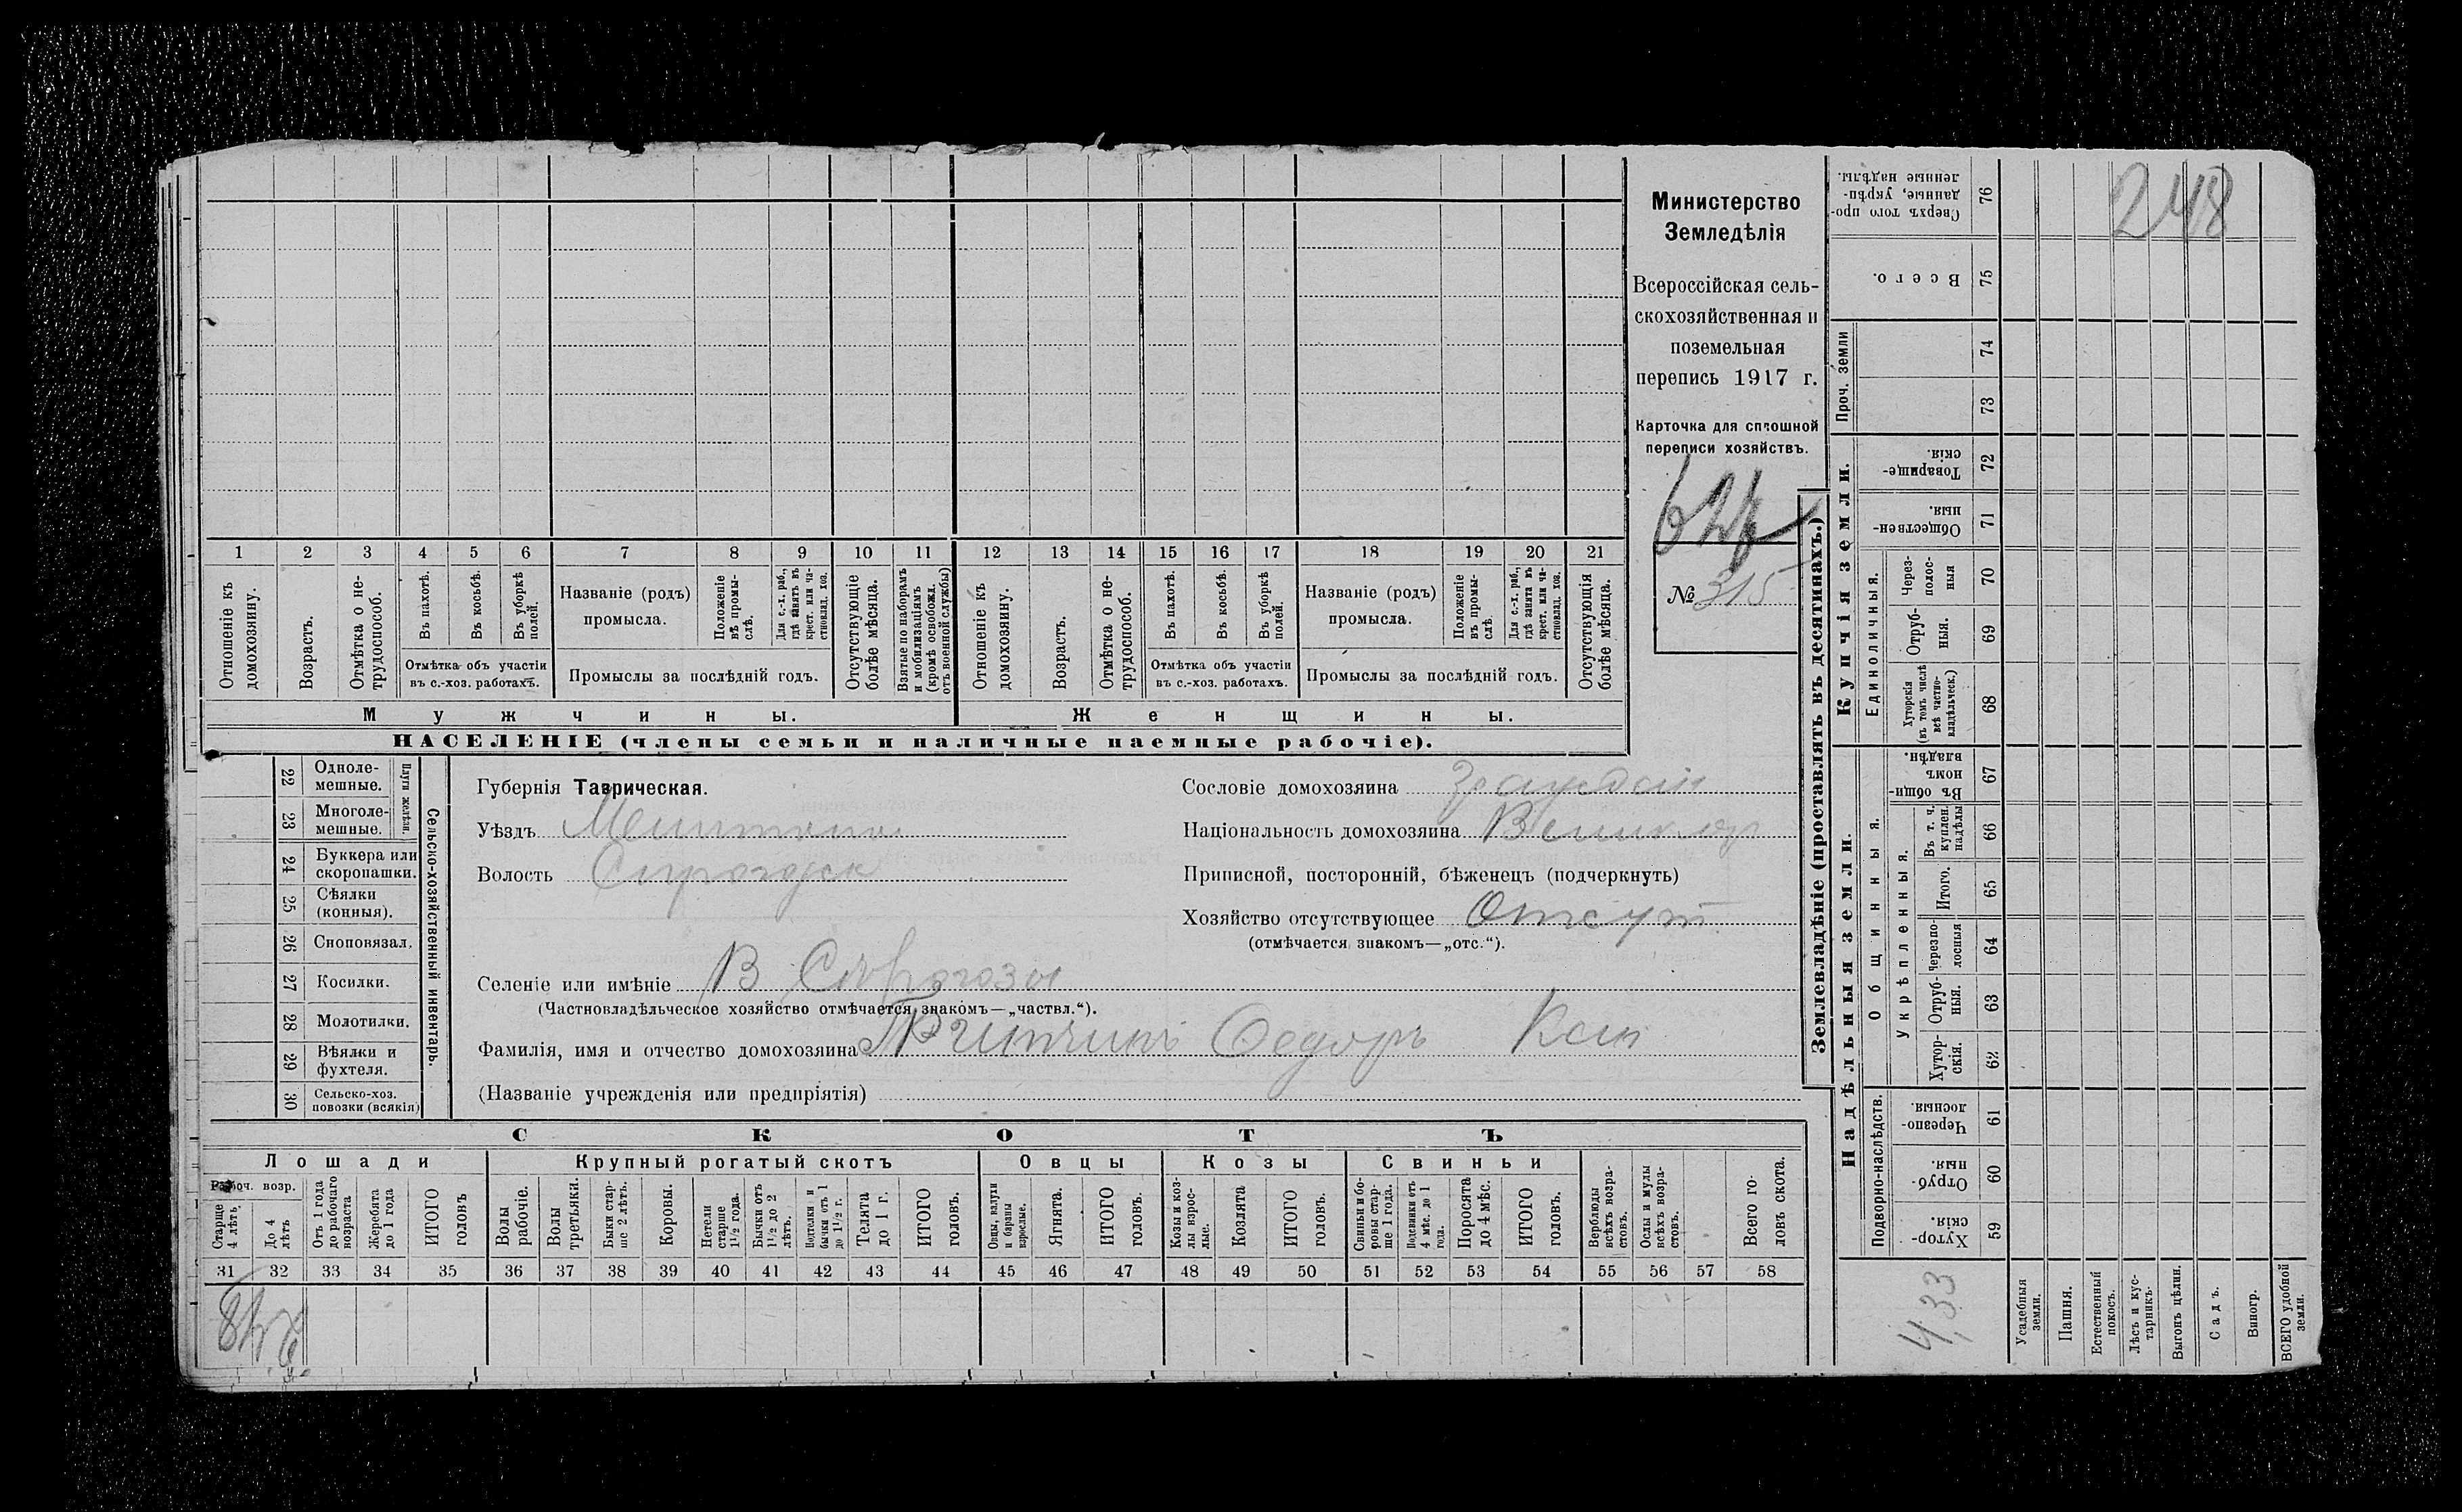 Министерство
Земледѣлія
Всероссійская сель-
скохозяйственная и
поземельная
перепись 1917 г.
Карточка для сплошной
переписи хозяйствъ.
№ 315
248
1 2 3 4 5 6 7 8 9 10 11 12 13 14 15 16 17 18 19 20 21
Отношеніе къ домохозяину.
Возрастъ.
Отмѣтка о не-трудоспособ.
Въ пахотѣ.
Въ косьбѣ.
Въ уборкѣ полей.
Отмѣтка объ участіи
въ с.-хоз. работахъ.
Названіе (родъ)
промысла.
Положеніе въ промы-слѣ.
Для с.-х. раб., гдѣ занятъ въ крест. или ча-стновлад. хоз.
Промыслы за послѣдній годъ.
Отсутствующіе болѣе мѣсяца.
Взятые по наборамъ и мобилизаціямъ (кромѣ освобожд. отъ военной службы)
Отношеніе къ домохозяину.
Возрастъ.
Отмѣтка о не-трудоспособ.
Въ пахотѣ.
Въ косьбѣ.
Въ уборкѣ полей.
Отмѣтка объ участіи
въ с.-хоз. работахъ.
Названіе (родъ)
промысла.
Положеніе въ промы-слѣ.
Для с.-х. раб., гдѣ занята въ крест. или ча-стновлад. хоз.
Промыслы за послѣдній годъ.
Отсутствующія болѣе мѣсяца.
Мужчины. Женщины.
НАСЕЛЕНІЕ (члены семьи и наличные наемные рабочіе).
22 Одноле-мешные.
23 Многоле-мешные.
Плуги желѣзн.
24 Буккера или скоропашки.
25 Сѣялки (конныя).
26 Сноповязал.
27 Косилки.
28 Молотилки.
29 Вѣялки и фухтеля.
30 Сельско-хоз. повозки (всякія)
Сельско-хозяйственный инвентарь.
Губернія Таврическая.
Уѣздъ
Волость
Селеніе или имѣніе В Сѣрогозы
(Частновладѣльческое хозяйство отмѣчается знакомъ—„частвл.“).
Фамилія, имя и отчество домохозяина Федоръ
(Названіе учрежденія или предпріятія)
Сословіе домохозяина
Національность домохозяина Великор
Приписной, посторонній, бѣженецъ (подчеркнуть)
Хозяйство отсутствующее Отсут
(отмѣчается знакомъ—„отс.“).
СКОТЪ
Лошади Крупный рогатый скотъ Овцы Козы Свиньи
Рабоч. возр.
Старше 4 лѣтъ
До 4 лѣтъ
Отъ 1 года до рабочаго возраста
Жеребята до 1 года
ИТОГО головъ
Волы рабочіе.
Волы третьяки.
Быки стар-ше 2 лѣтъ.
Коровы.
Нетели старше 1½ года.
Бычки отъ 1½ до 2 лѣтъ.
Подтелки и бычки отъ 1 до 1½ г.
Телята до 1 г.
ИТОГО головъ.
Овцы, валухи и бараны взрослые.
Ягнята.
ИТОГО головъ.
Козы и коз-лы взрос-лые.
Козлята
ИТОГО головъ.
Свиньи и бо-ровы стар-ше 1 года.
Подсвинки отъ 4 мѣс. до 1 года.
Поросята до 4 мѣс.
ИТОГО головъ.
Верблюды всѣхъ возра-стовъ.
Ослы и мулы всѣхъ возра-стовъ.
Всего го-ловъ скота.
31 32 33 34 35 36 37 38 39 40 41 42 43 44 45 46 47 48 49 50 51 52 53 54 55 56 57 58
Землевладѣніе (проставлять въ десятинахъ.)
Купчія земли.
Надѣльныя земли.
Сверхъ того про-данные, укрѣп-ленные надѣлы. 76
Всего. 75
Проч. земли 74 73
Товарище-скія. 72
Обществен-ныя. 71
Единоличныя.
Через-полос-ныя 70
Отруб-ныя. 69
Хуторскія (въ томъ числѣ всѣ частно-владѣльческ.) 68
Общинныя.
Въ общин-номъ владѣн. 67
Укрѣпленныя.
Въ т. ч. куплен. надѣлы 66
Итого. 65
Черезпо-лосныя 64
Отруб-ныя. 63
Хутор-скія. 62
Подворно-наслѣдств.
Черезпо-лосныя. 61
Отруб-ныя. 60
Хутор-скія. 59
4,33
Усадебныя земли.
Пашня.
Естественный покосъ.
Лѣсъ и кус-тарникъ.
Выгонъ цѣлин.
Садъ.
Виногр.
ВСЕГО удобной земли.